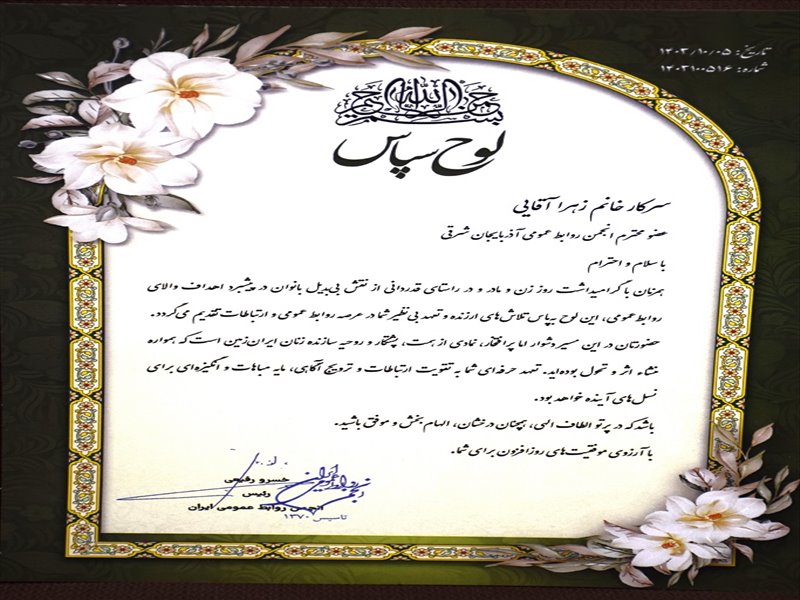 تاریخ: ۱۴۰۳/۱۰/۰۵
شماره: ۱۴۰۳۱۰۰۵۱۶
بسم الله الرحمن الرحیم
لوح سپاس
سرکار خانم زهرا آقایی
عضو محترم انجمن روابط عمومی آذربایجان شرقی
با سلام و احترام
همزمان با گرامیداشت روز زن و مادر و در راستای قدردانی از نقش بی‌بدیل بانوان در پیشبرد اهداف والای
روابط عمومی، این لوح بپاس تلاش‌های ارزنده و تعهد بی‌نظیر شما در عرصه روابط عمومی و ارتباطات تقدیم می‌گردد.
حضورتان در این مسیر دشوار اما پرافتخار، نمادی از همت، پشتکار و روحیه سازنده زنان ایران‌زمین است که همواره
منشاء اثر و تحول بوده‌اید. تعهد حرفه‌ای شما به تقویت ارتباطات و ترویج آگاهی، مایه مباهات و انگیزه‌ای برای
نسل‌های آینده خواهد بود.
باشد که در پرتو الطاف الهی، همچنان درخشان، الهام بخش و موفق باشید.
با آرزوی موفقیت‌های روزافزون برای شما.
خسرو رفیعی
رئیس
انجمن روابط عمومی ایران
تاسیس ۱۳۷۰